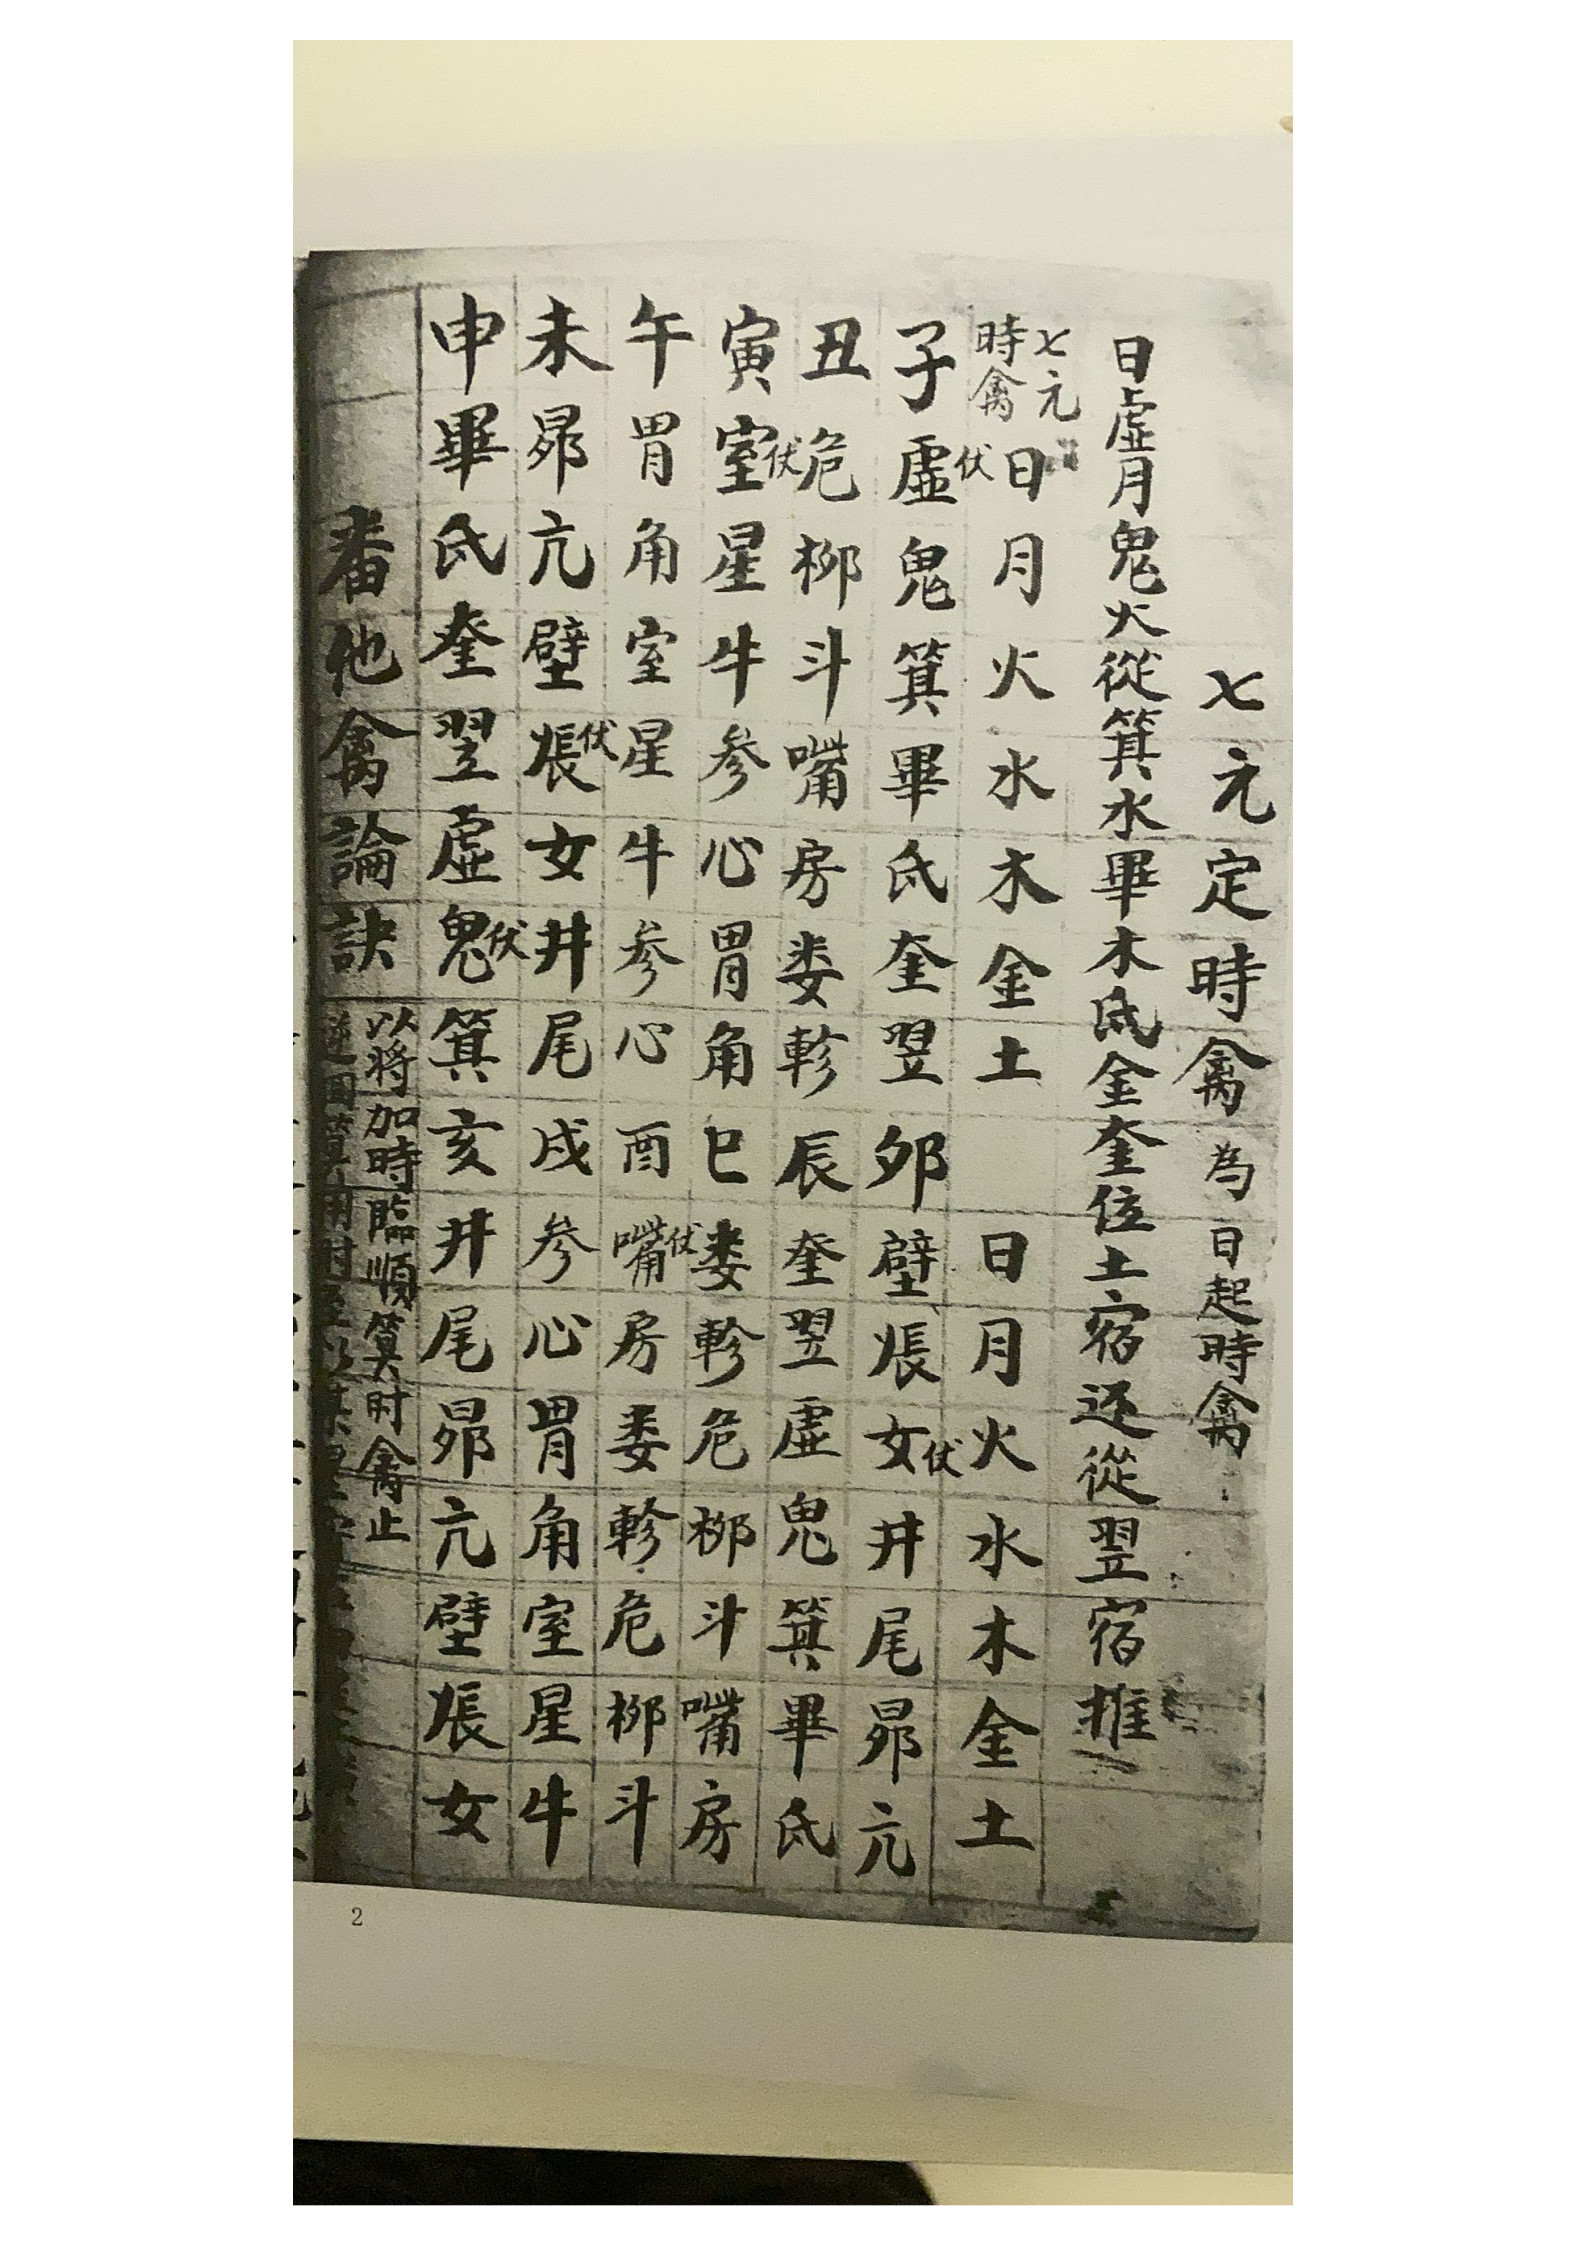 七元定時禽 為日起時禽
日虛月鬼火從箕水畢木氐金奎位土宿還從翌宿推
七元時禽 日月火水木金土 日月火水木金土
子虛伏鬼箕畢氐奎翌 卯壁張女伏井尾昴亢
丑危柳斗嘴房娄軫 辰奎翌虛鬼箕畢氐
寅室伏星牛参心胃角 巳娄軫危柳斗嘴房
午胃角室星牛参心 酉嘴伏房娄軫危柳斗
未昴亢壁張伏女井尾 戌参心胃角室星牛
申畢氐奎翌虛鬼伏箕 亥井尾昴亢壁張女
番他禽論訣 以将加時臨順算时禽止
2